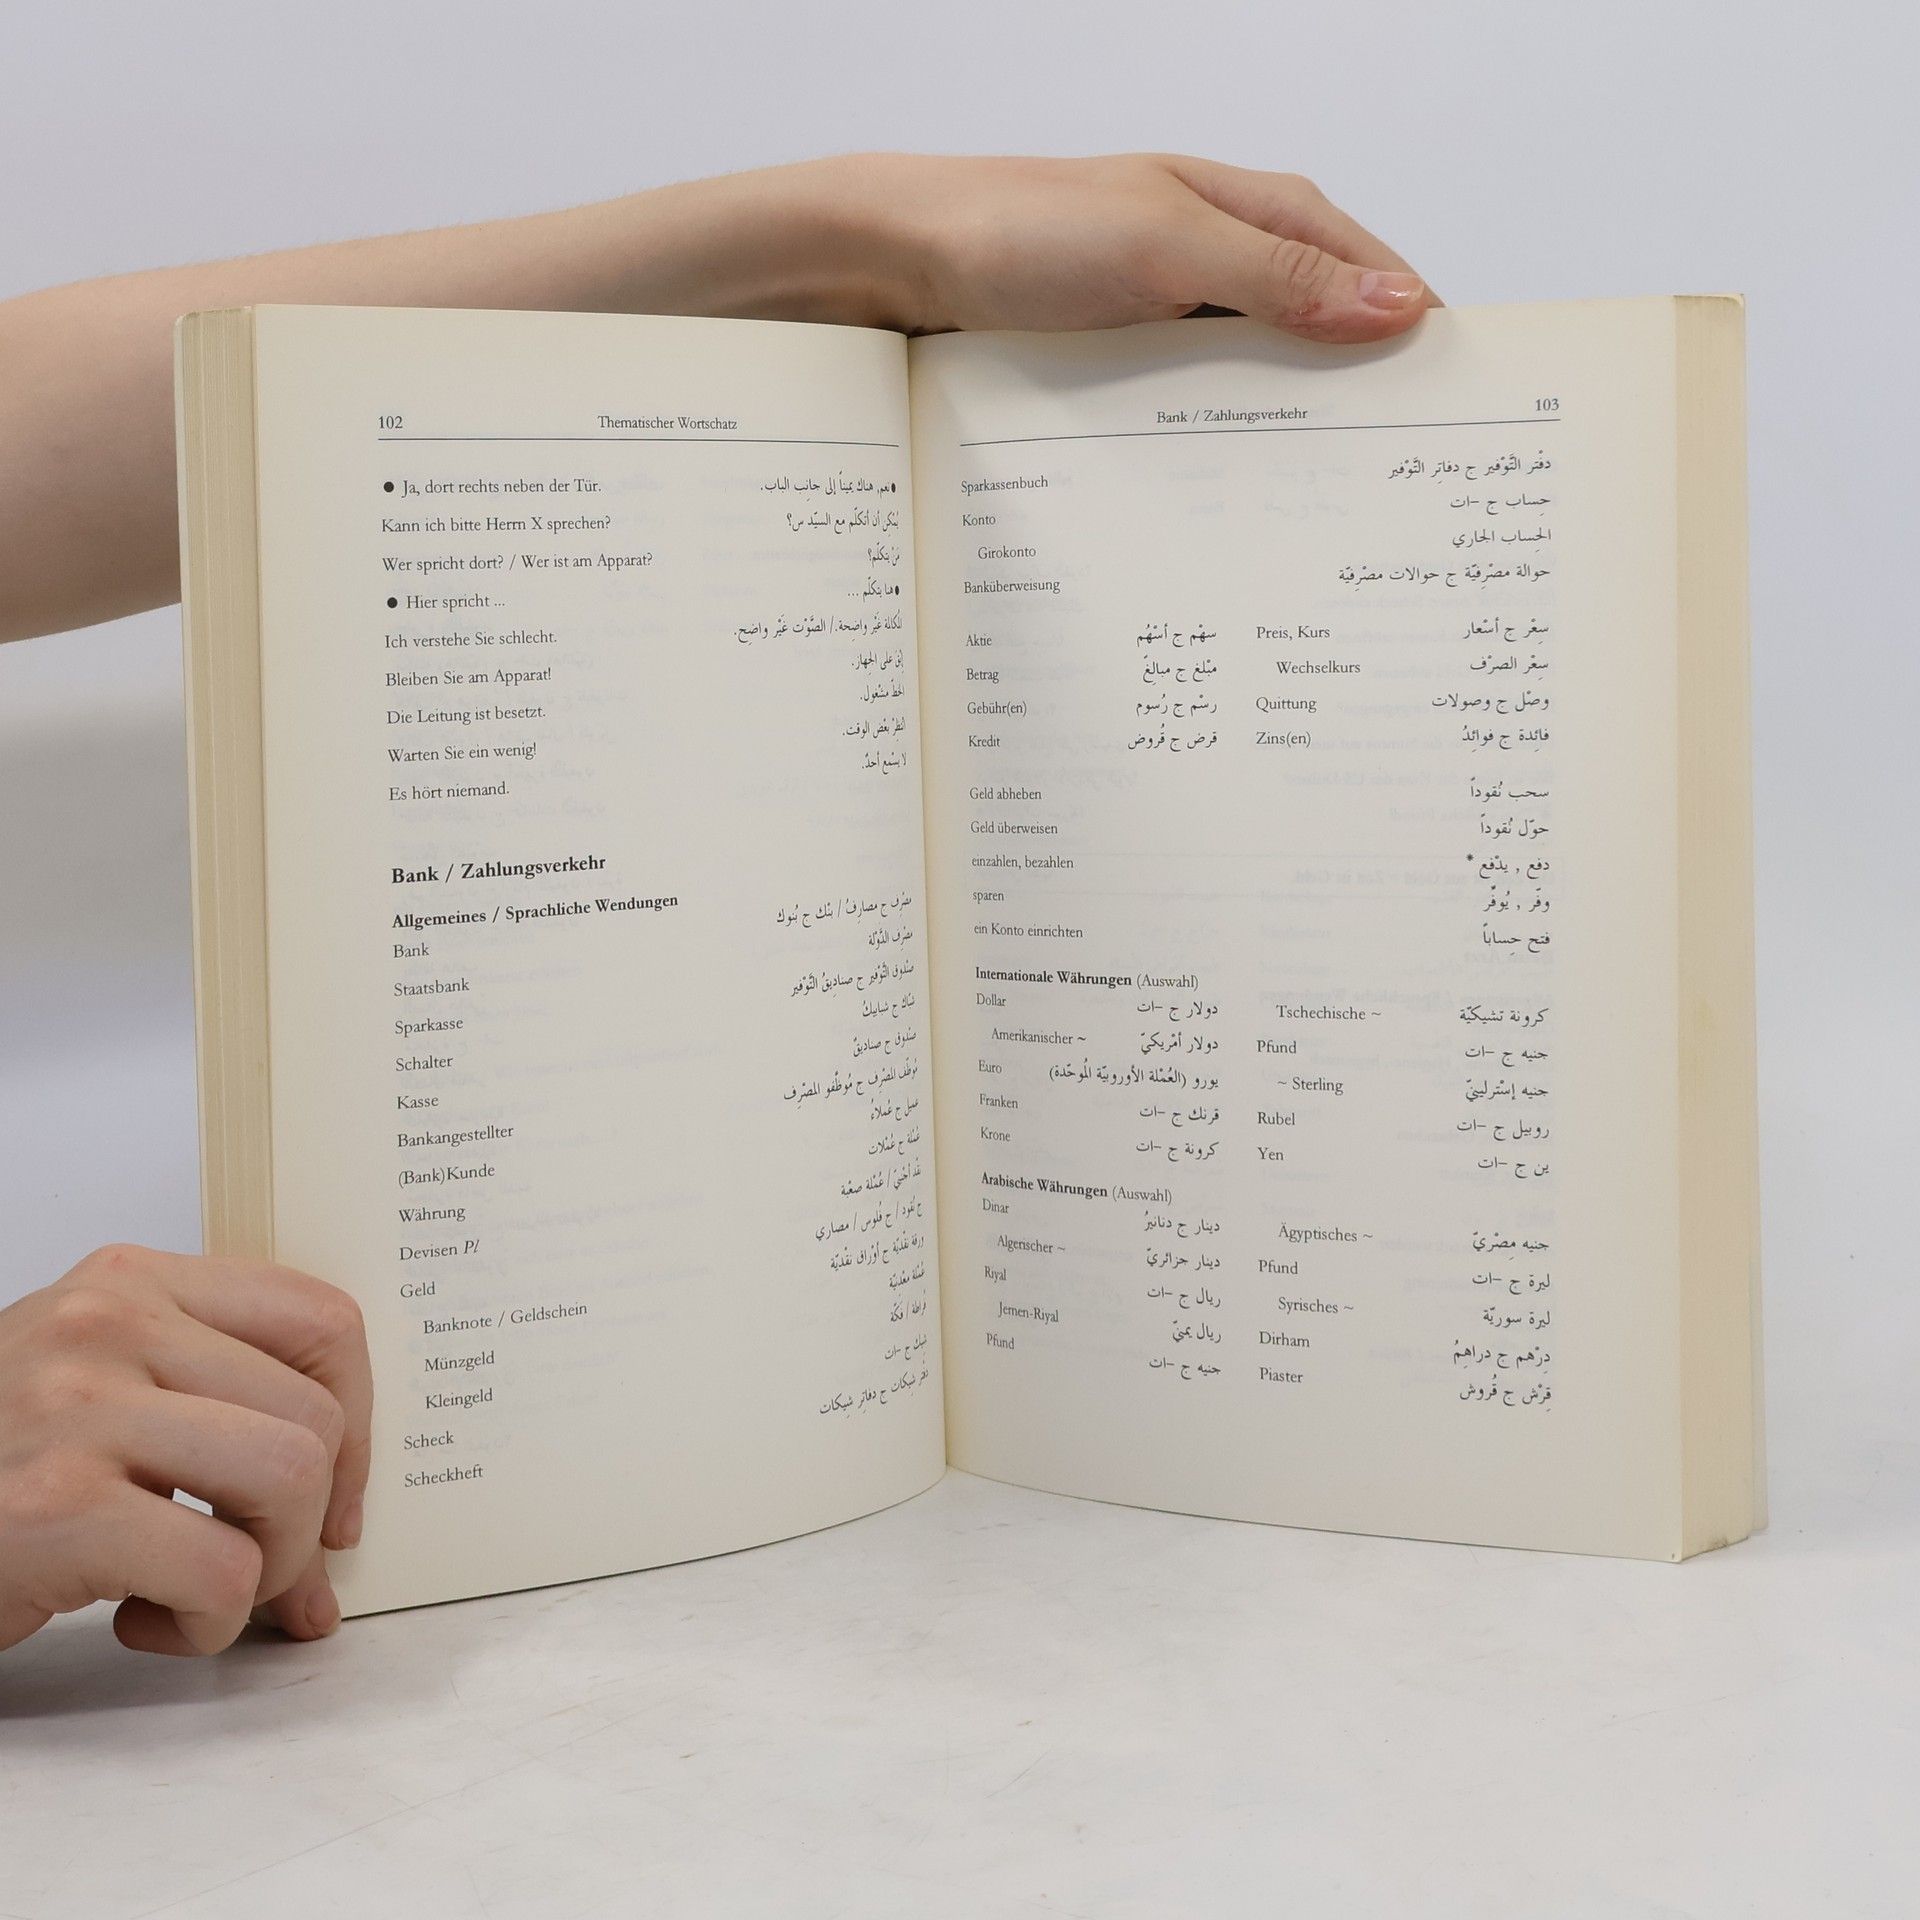 102 Thematischer Wortschatz
● Ja, dort rechts neben der Tür. ●نعم, هناك يميناً إلى جانِب الباب.
Kann ich bitte Herrn X sprechen? يُمْكِن أن أتكلّم مع السيّد س؟
Wer spricht dort? / Wer ist am Apparat? مَنْ يتكلّم؟
● Hier spricht ... ●هنا يتكلّم ...
Ich verstehe Sie schlecht. المُكالمة غَيْر واضِحة./ الصَّوْت غَيْر واضِح.
Bleiben Sie am Apparat! إبْقَ على الجِهاز.
Die Leitung ist besetzt. الخطّ مشْغول.
Warten Sie ein wenig! انْتظِرْ بعْض الوقت.
Es hört niemand. لا يسْمَع أحدٌ.
Bank / Zahlungsverkehr
Allgemeines / Sprachliche Wendungen
Bank مصْرِف ج مصارِفُ / بنْك ج بُنوك
Staatsbank مصْرِف الدَّوْلة
Sparkasse صنْدوق التَّوْفير ج صناديقُ التَّوْفير
Schalter شبّاك ج شبابيكُ
Kasse صنْدوق ج صناديقُ
Bankangestellter مُوظّف المصْرِف ج مُوظّفو المصْرِف
(Bank)Kunde عميل ج عُملاءُ
Währung عُمْلة ج عُمْلات
Devisen Pl نقْد أجْنبيّ / عُمْلة صعْبة
Geld ج نُقود / ج فُلوس / مصاري
Banknote / Geldschein ورقة نقْديّة ج أوْراق نقْديّة
Münzgeld عُمْلة معْدنيّة
Kleingeld فُراطة / فكّة
Scheck شيك ج –ات
Scheckheft دفْتر شيكات ج دفاتِر شيكات
Bank / Zahlungsverkehr 103
Sparkassenbuch دفْتر التَّوْفير ج دفاتِر التَّوْفير
Konto حِساب ج –ات
Girokonto الحِساب الجاري
Banküberweisung حوالة مصْرِفيّة ج حوالات مصْرِفيّة
Aktie سهْم ج أسْهُم Preis, Kurs سِعْر ج أسْعار
Betrag مبْلغ ج مبالِغُ Wechselkurs سِعْر الصرْف
Gebühr(en) رسْم ج رُسوم Quittung وصْل ج وصولات
Kredit قرض ج قُروض Zins(en) فائِدة ج فوائِدُ
Geld abheben سحب نُقوداً
Geld überweisen حوّل نُقوداً
einzahlen, bezahlen دفع , يدْفع *
sparen وفّر , يُوفّر
ein Konto einrichten فتح حِساباً
Internationale Währungen (Auswahl)
Dollar دولار ج –ات Tschechische ~ كرونة تشيكيّة
Amerikanischer ~ دولار أمْريكيّ Pfund جنيه ج –ات
Euro يورو (العُمْلة الأوروبيّة المُوحّدة) ~ Sterling جنيه إسْترلينيّ
Franken فرنك ج –ات Rubel روبيل ج –ات
Krone كرونة ج –ات Yen ين ج –ات
Arabische Währungen (Auswahl)
Dinar دينار ج دنانيرُ Ägyptisches ~ جنيه مِصْريّ
Algerischer ~ دينار جزائريّ Pfund ليرة ج –ات
Riyal ريال ج –ات Syrisches ~ ليرة سوريّة
Jemen-Riyal ريال يمنيّ Dirham دِرْهم ج دراهِمُ
Pfund جنيه ج –ات Piaster قِرْش ج قُروش